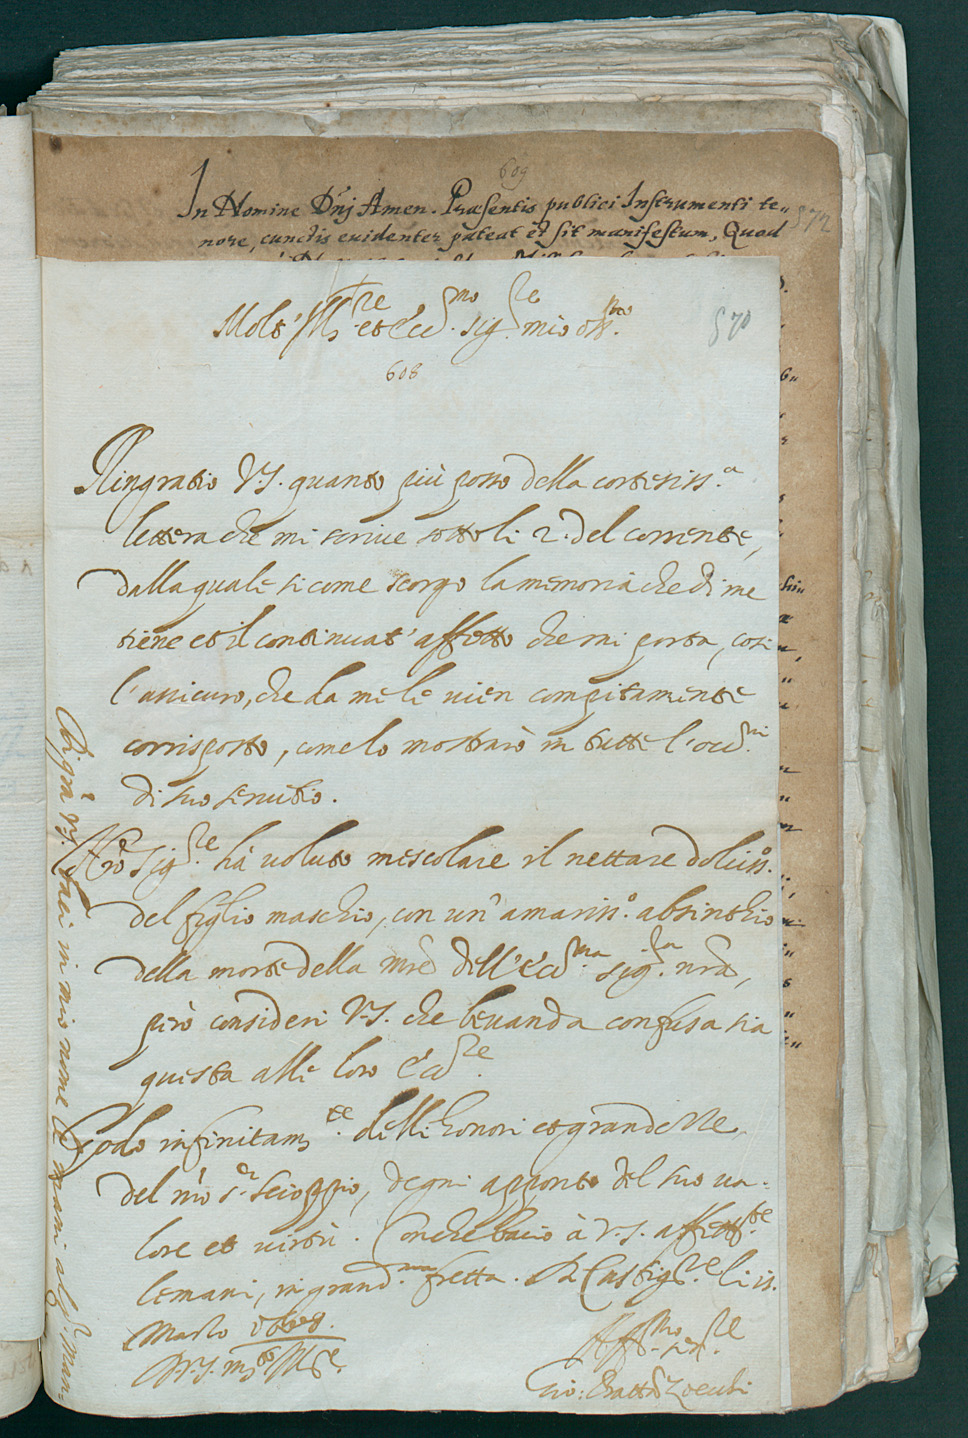 609
In Nomine Dnj Amen. Præsentis publici Instrumenti te„
572
nore, cunctis euidenter pateat et sit manifestum, Quod
Molt' Ill.re et Ecc.mo sig.re mio oss.mo
570
608
Ringratio V.S. quanto più posso della cortesiss.a
lettera che mi scriue sotto li 2. del corrente,
dalla quale si come scorgo la memoria che di me
tiene et il continuat' affetto che mi porta, cosi
l'assicuro, che da me le uien compitamente
corrisposto, come lo mostrarò in tutte l'occ.ni
di suo seruitio.
sig.re hà uoluto mescolare il nettare dolciss.o
del figlio maschio, con un' amariss.o absinthio
della morte della mre dell'Ecc.ma sig.ra nra,
però consideri V.S. che beuanda confusa sia
questa alle loro Ecc.ze
Godo infinitam.te delli honori et grandezze
del mio s.r Scioppio, degni apponto del suo ua-
lore et uirtù. Con che bacio à V.S. affett.te
le mani, in grand.ma fretta. Di Castig.ne li is.
Marzo
Di V.S. m.to Ill.re
Aff.mo ser.re
Gio: Batt.a
V.S. baci in mio nome le mani al s.r Man: